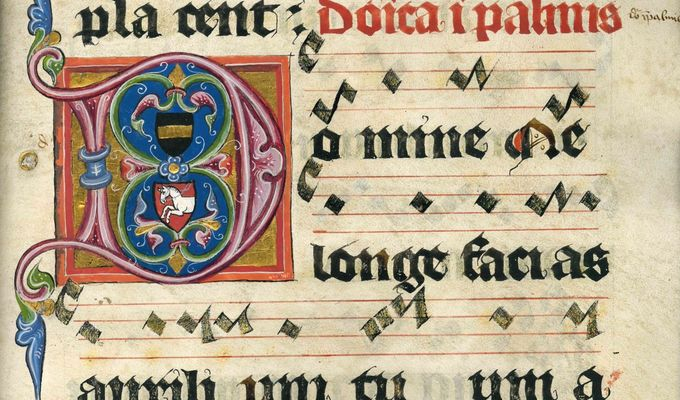 pla cent : Doīca ī palmis
Do mine Ne
longe faci as
auxili um tu um a